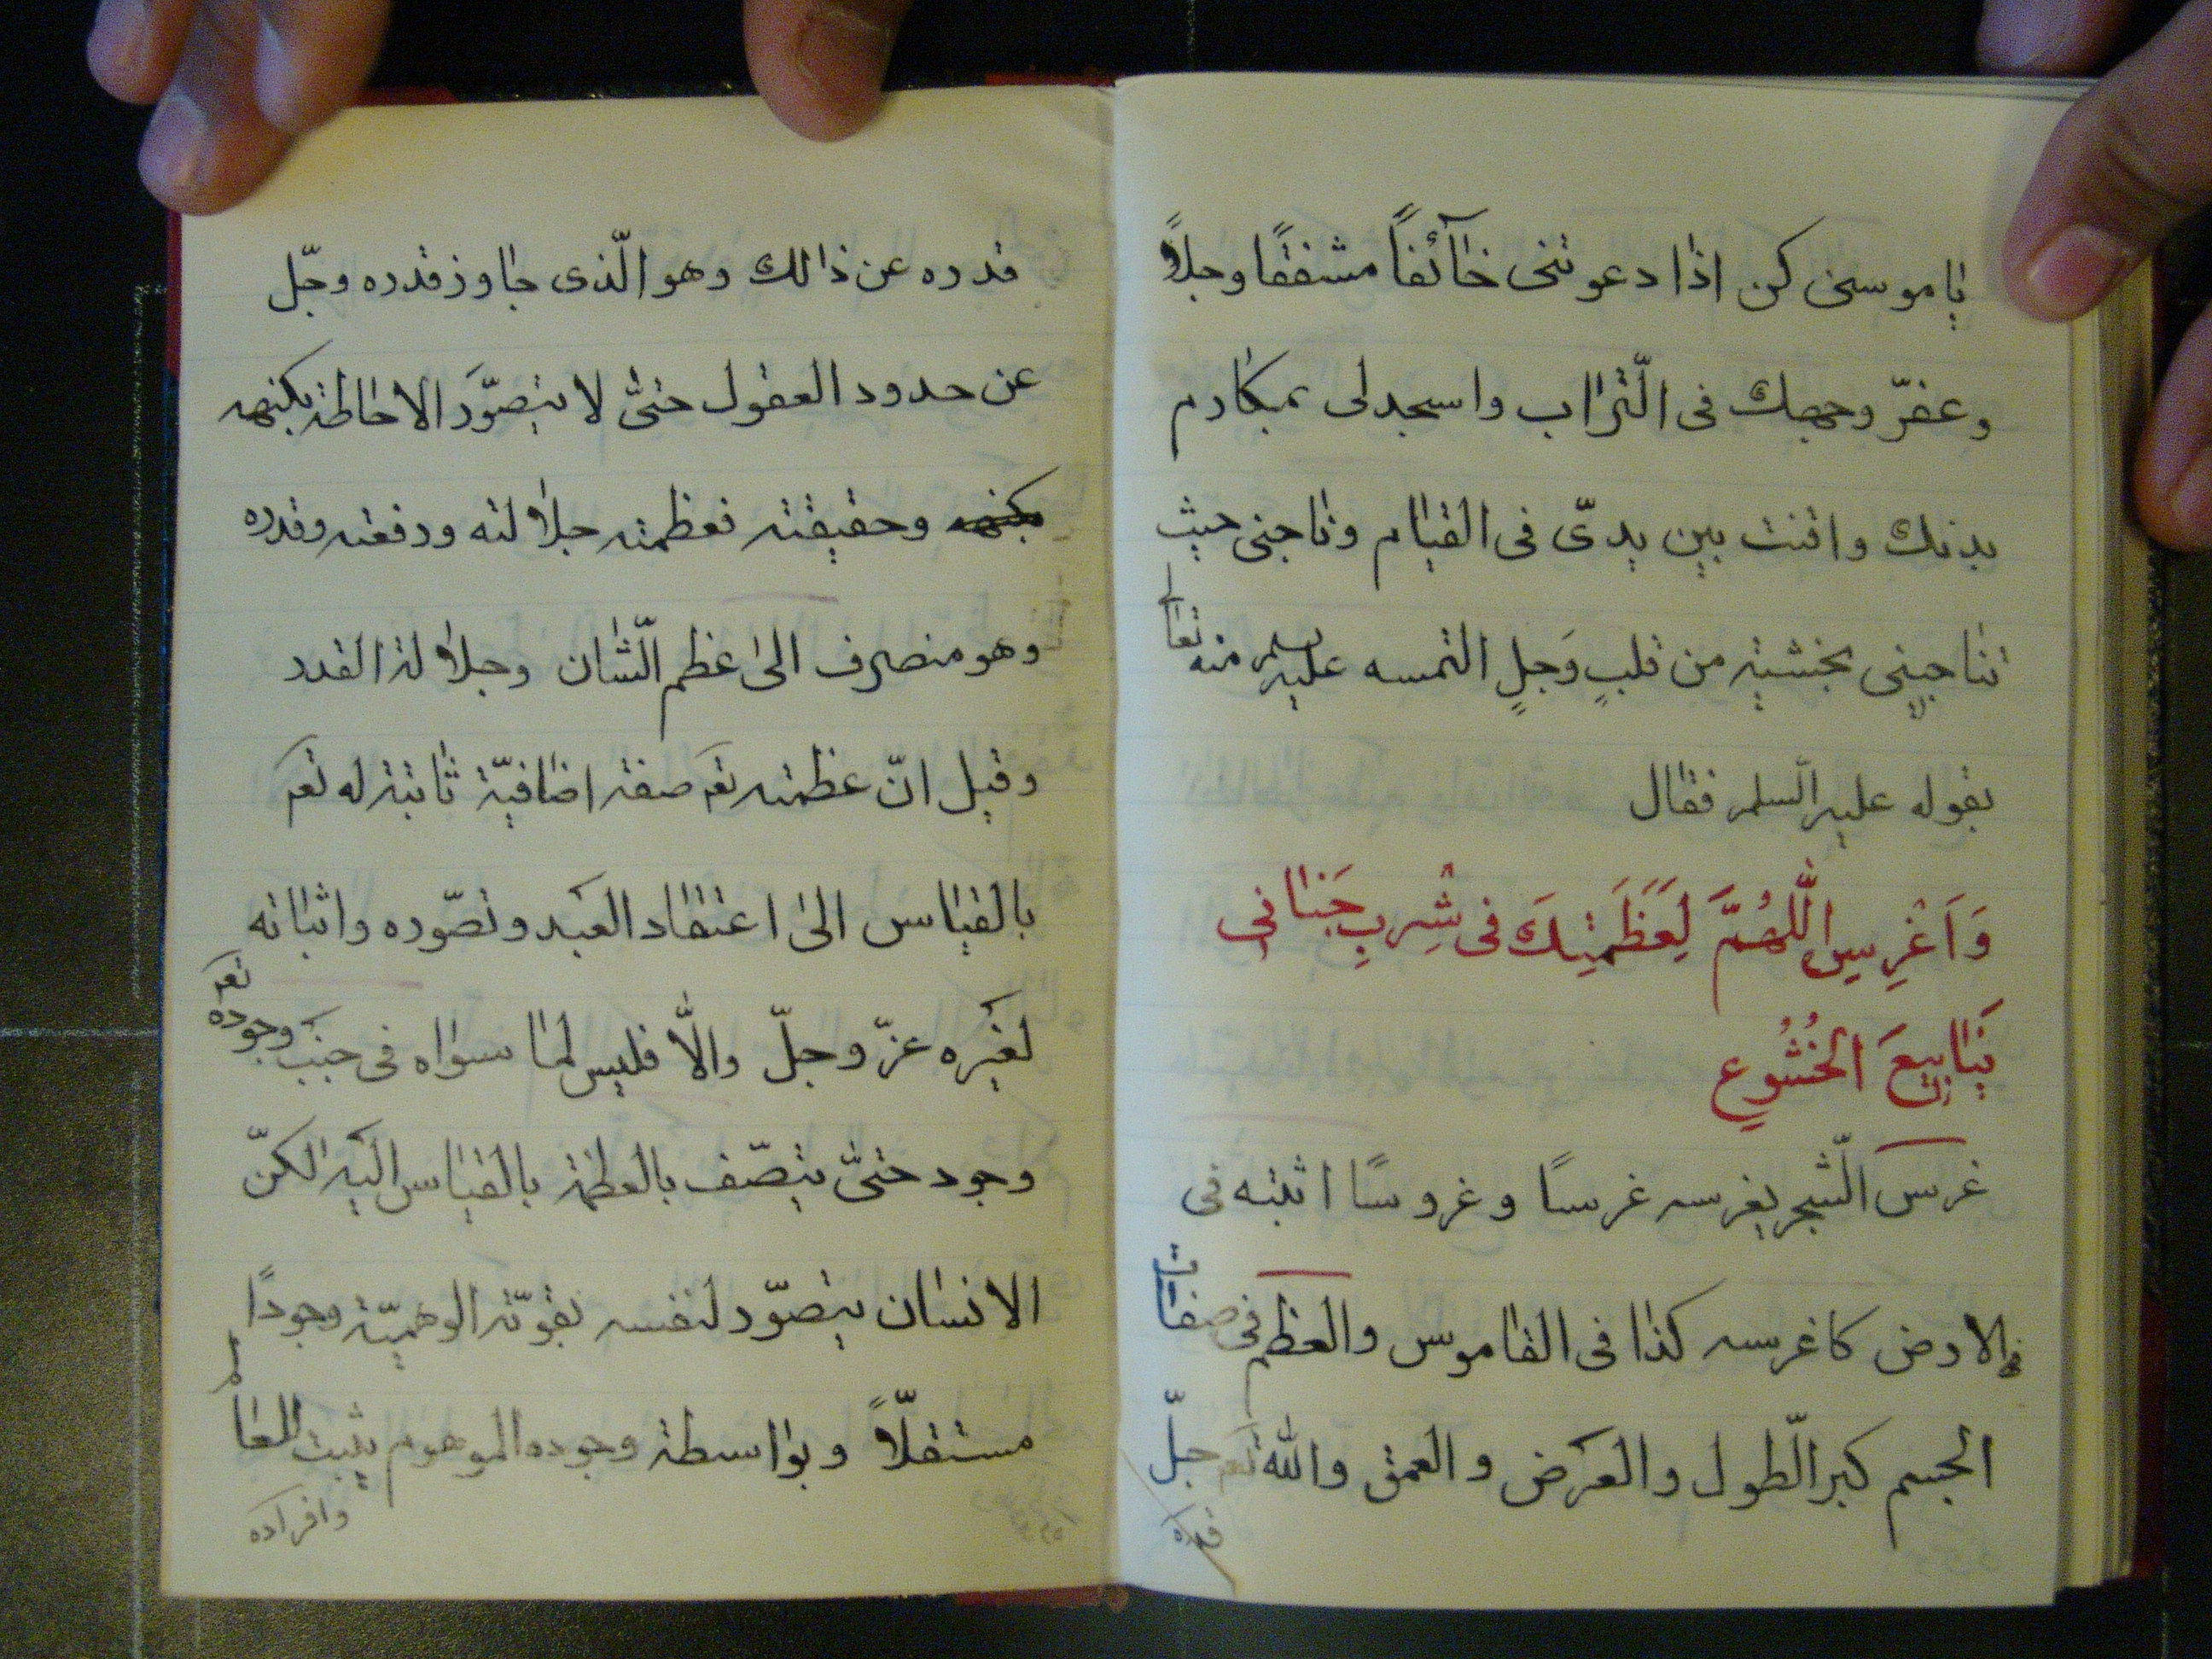 یا موسی کن اذا دعوتنی خآئفاً مشفقًا وجلاً
و عفّر وجهك فی الّتراب واسجد لی بمکارم
بدنك واقنت بین یدیّ فی القیام وناجنی حیث
تناجینی بخشیة من قلبٍ وَجلٍ التمسه علیه السلم منه تعالی
بقوله علیه السّلم فقال
وَاَغْرِسِ اللّٰهُمَّ لِعَظَمَتِكَ فی شِربِ جَنانی
یَنابیعَ الخُشُوعِ
غرس الّشجر یغرسه غرسًا و غروسًا اثبته فی
فی الارض کاغرسه کذا فی القاموس والعظم فی صفات
الجسم کبر الّطول والعرض والعمق والله تعم جلّ
قدره
قدره عن ذالك وهو الّذی جاوز قدره وجّل
عن حدود العقول حتیّ لا یتصوَّر الاحاطة بکنهه
بکنهه وحقیقته فعظمته جلالته ورفعته وقدره
وهو منصرف الی عظم الّشان وجلالة القدر
وقیل انّ عظمته تعم صفة اضافیّة ثابتة له تعم
بالقیاس الی اعتقاد العبد وتصّوره واثباته
لغیره عزّ وجلّ والاّ فلیس لما سواه فی جنب وجوده تعم
وجود حتیّ یتصّف بالعظمة بالقیاس الیه لکنّ
الانسان یتصوّر لنفسه بقوّته الوهمیّة وجودًا
مستقلّاً وبواسطة وجوده الموهوم یثبت للعالم
وافراده